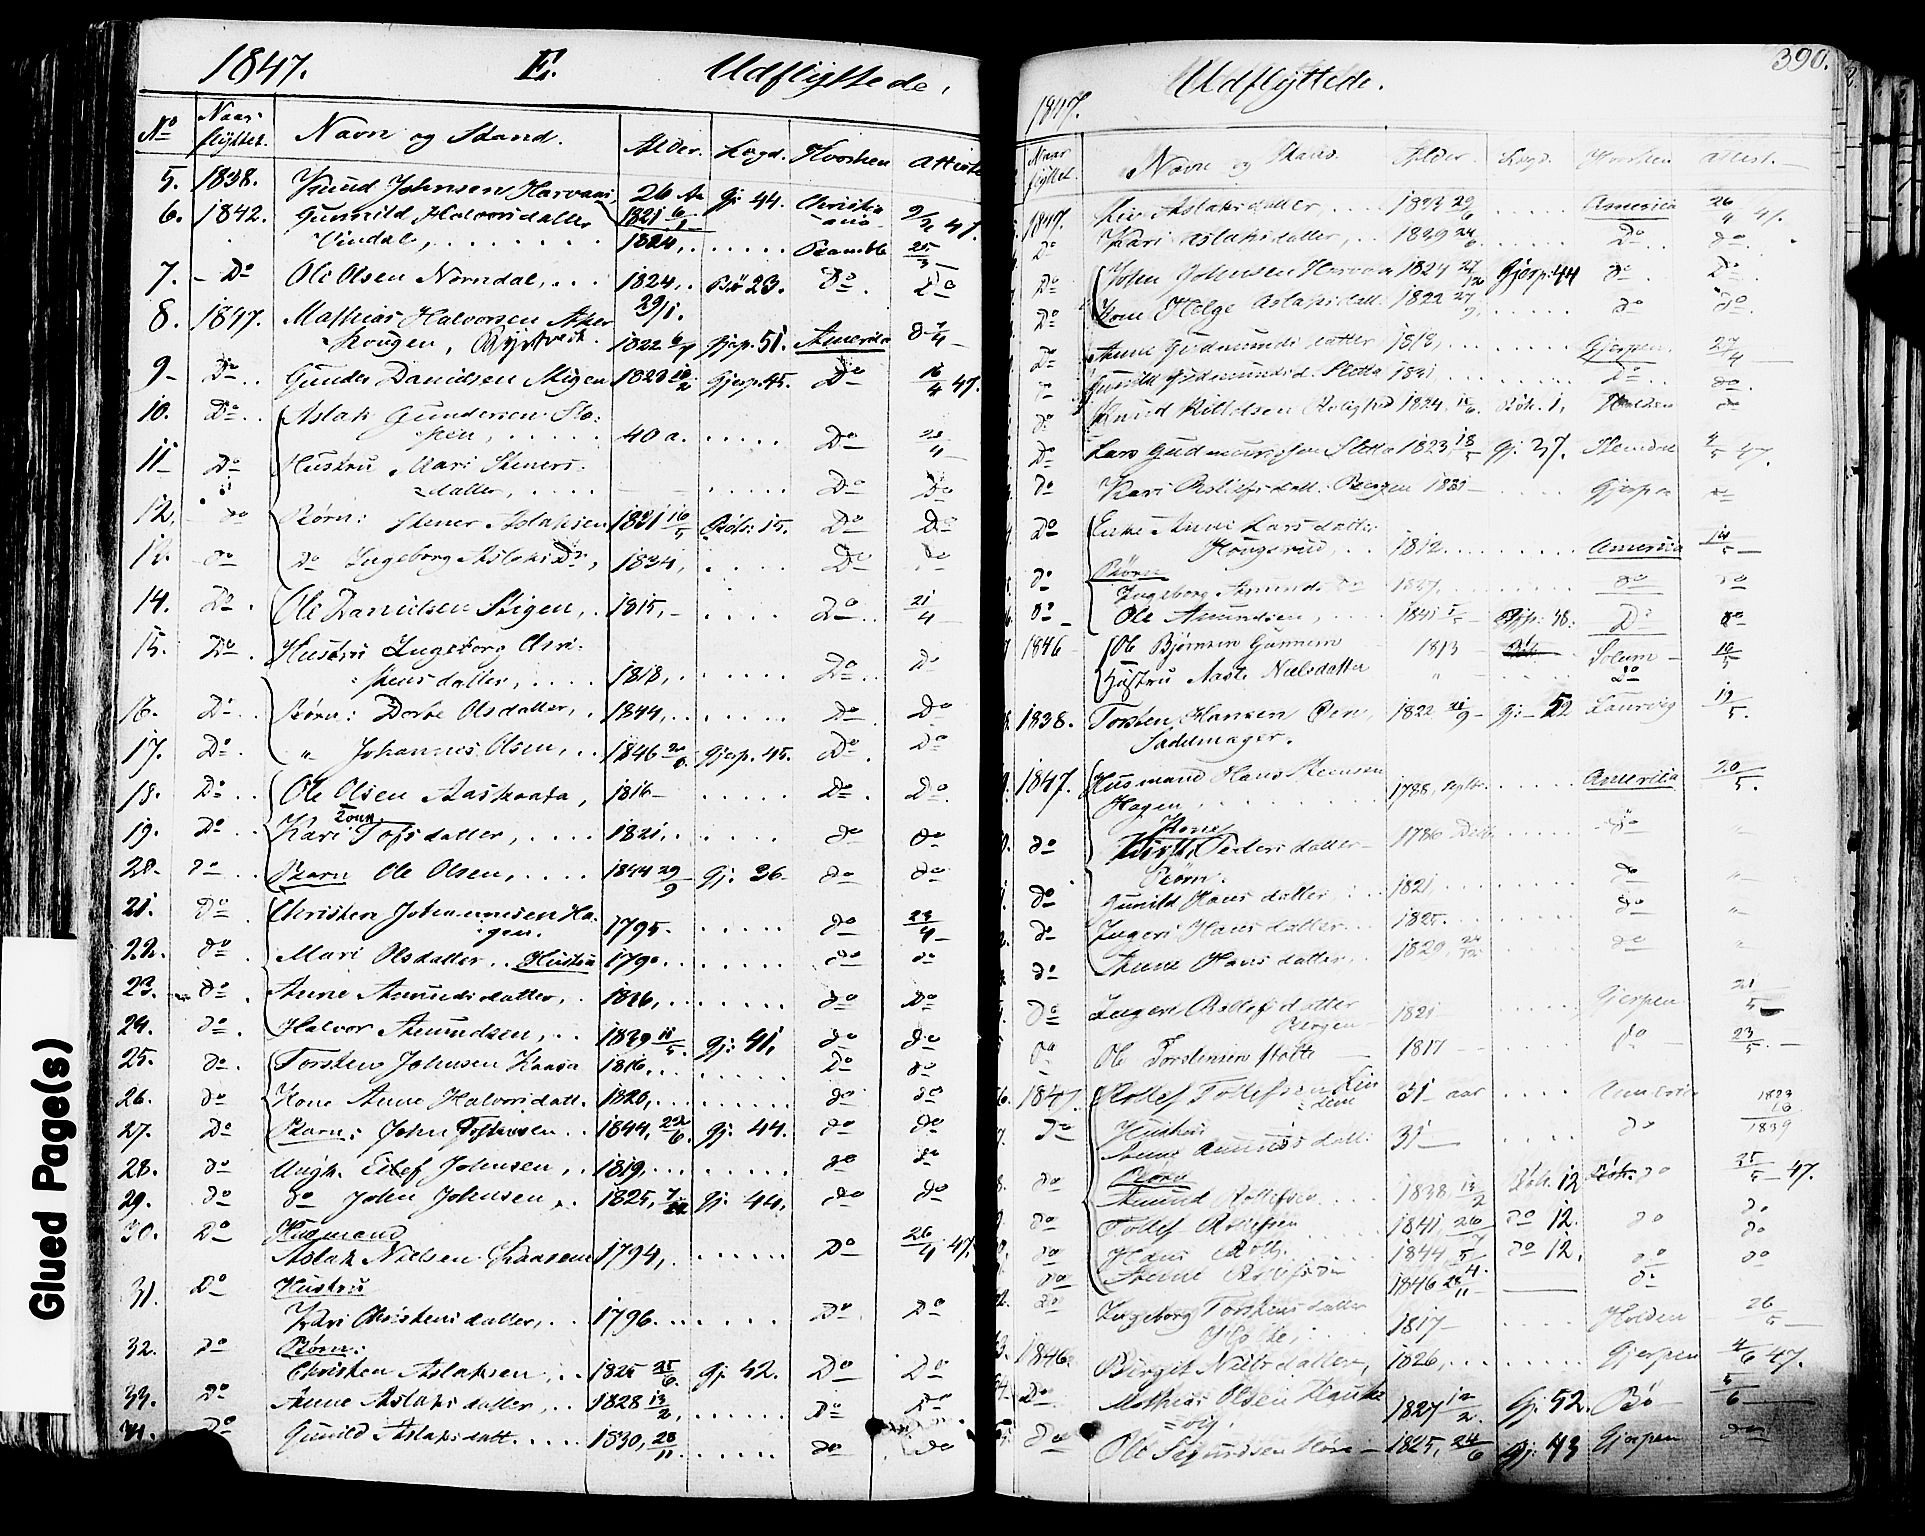 1847. E. Udflyttede.
No Naar flyttet. Navn og Stand. Alder. Lægd. Hvorhen Attest
5. 1838. Knud Johnsen Harvaas, 26 Aar Gj: 44. Christiania 9/3 47.
6. 1842. Gunnild Halvorsdatter 1821
Vindal, . . . 1824, . . . Bamble 25/3 –
7. – Do Ole Olsen Norndal, . . . 1824, . Bö 23. Do Do
29/1.
8. 1847. Mathias Halvorsen Aker
Kongen, 1822 Gjerp. 51. America
9 – Do . . Gunder Danielsen Stigen 1823 Gjerp. 45. Do 16/4 47.
10. Do . . Aslak Gundersen Slo:
pen, . . . 40 a. . . . Do
11 – Do Hustru Kari Steners:
datter, . . . Do Do
12. – do Börn: Stener Aslaksen 1821 16/5 Do Do
13. do do Ingeborg Aslaks Dr, 1834, . . . Do Do
14. Do . Ole Danielsen Stigen, . 1815, – . . . Do . . 21/4
15. Do . Hustru Ingeborg Chri:
stensdatter, . . . 1818, . . . Do . . Do
16. Do . . Börn: Dorte Olsdatter, . 1844, . . . Do Do
17. Do . „ Johannes Olsen, . . 1846 Gjerp. 45. Do . Do
18. Do . . Ole Olsen Aaskaasa, 1816 – . . . Do . Do
19. Do . . Kone Kari Tofsdatter, . . . 1821, . . . do do
20. do – . Barn Ole Olsen, . . . 1844 29/9 Gj. 36 – do do
21. Do . Christen Johannesen Ha:
gen. 1795. . . . do 23/4 –
22. do . Mari Olsdatter . . Hustru 1790 . . . do do
23. do . Anne Amundsdatter, . 1826, . . . do Do
24. do . Halvor Amundsen, . . 1829 11/5. Gj: 41, do do
25. do . Torsten Johnsen Kaasa 1816, . . . Do do
26. do Kone Anne Halvorsdatt. 1820, . . . do do
27. Do Barn: John Torstensen . . 1844, 22/6. Gj. 44. do do
28. do Ungk. Eilef Johnsen, . . 1819, . . . do do
29. do do John Johnsen, . . 1825, Gj. 44, do do
30. Do Husmand
Aslak Nielsen 1794, . . . Do 26/4 47.
31. Do Hustru
Kari Christensdatter, . . 1796. . . . Do Do
32. do Börn:
Christen Aslaksen, . . 1825 25/6. Gj. 42. Do Do
33. Do Anne Aslaksdatter, . . 1828 13/2, . . . Do Do
34. Do Gunild Aslaksdatt. . . . 1830, 28/11. . . . do do
Udflyttede. 390.
1847.
Naar flyttet. Navn og Stand. Alder. Lægd. Hvorhen Attest.
1847. Liv Aslaksdatter . . . 1823 29/6 . . . America 26/4 47.
Do Kari Aslaksdatter, . . 1829 . . . Do . . do .
Do John Johnsen Harvaas 1824 27/12 Gjerp: 44 do . Do .
Do Kone Helge Aslaksdatt. 1822 . . . do do .
Do Anne Gudmundsdatter 1818, . . . Gjerpen 27/4
Do Gunild Gudmundsd. Sletta 1821 . . . Do . . do .
do Knud Kittelsen Rolighed 1824, Böh. 1, Holden do
Do Lars Gudmundsen Sletta 1823, 18/5 Gj. 37. 4/5 47.
do Kari Rollefsdatt. Bergen 1821 – . . . Gjerpen
Do Enke Anne Larsdatter
Hougerud, . . 1812. . . . America 14/5 –
do Börn
Ingeborg Amunds Dr 1837. . . . do do
do – Ole Amundsen, . . . 1841 Do do
1846 Ole Björnsen Gunnern 1813 – Solum – 10/5
Hustru Aaste Nielsdatter „ – Do
1838. Torsten Hansen 1822 21/9 – Gj: – 52 Laurvig 19/5.
Sadelmager.
1847. Husmand Hans Steensen
Hagen, 1788, Septbr. America 20/5.
do Kone
Pedersdatter – 1786 . . . do „
Börn.
do Gunild Hansdatter, . . . 1821, . . . do „
do Ingeri Hansdatter . . . 1825. . . . do „
do Anne Hansdatter, . 1829, 24/12 . . . do „
do Ingeri Rollefsdatter
Bergen 1821 – . . . Gjerpen 21/5 –
do Ole Torstensen Holte – 1817 – . . . do – 23/5. –
1847. Rollef Tollefsen 31 – aar . . . America
do Hustru
Anne Amundsdatt: 31 – . . . do
do Börn
Amund Rollefsen . . . 1838 13/2 Böh. 12 do 25/5 – 47.
do Tollef Rollefsen 1841, do 12. do do
do Hans Roll. 1844 do 12. do do
do Anne Rollefsdr 1846 – do do
do Ingeborg Torstensdatter
Holte, . . . 1817 – . . . Holden 26/5 –
1846. Birgit Nielsdatter, 1826, . . . Gjerpen 4/6 47.
Do Mathias Olsen
vig. 1827 12/2. Gj. 52. Bö 5/6 –
do Ole Sigurdsen – 1825, 24/6 Gj: 43 Gjerpen do
Glued Page(s)